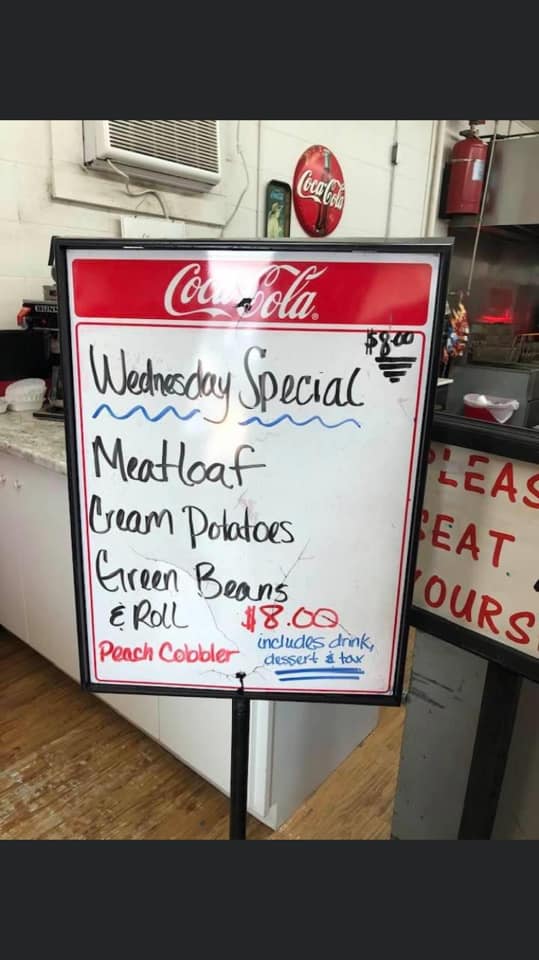 Coca-Cola
Coca-Cola
$8.00
Wednesday Special
Meatloaf
Cream Potatoes
Green Beans
& Roll
$8.00
Peach Cobbler
includes drink,
dessert & tax
PLEAS
SEAT
YOURS
BUNN